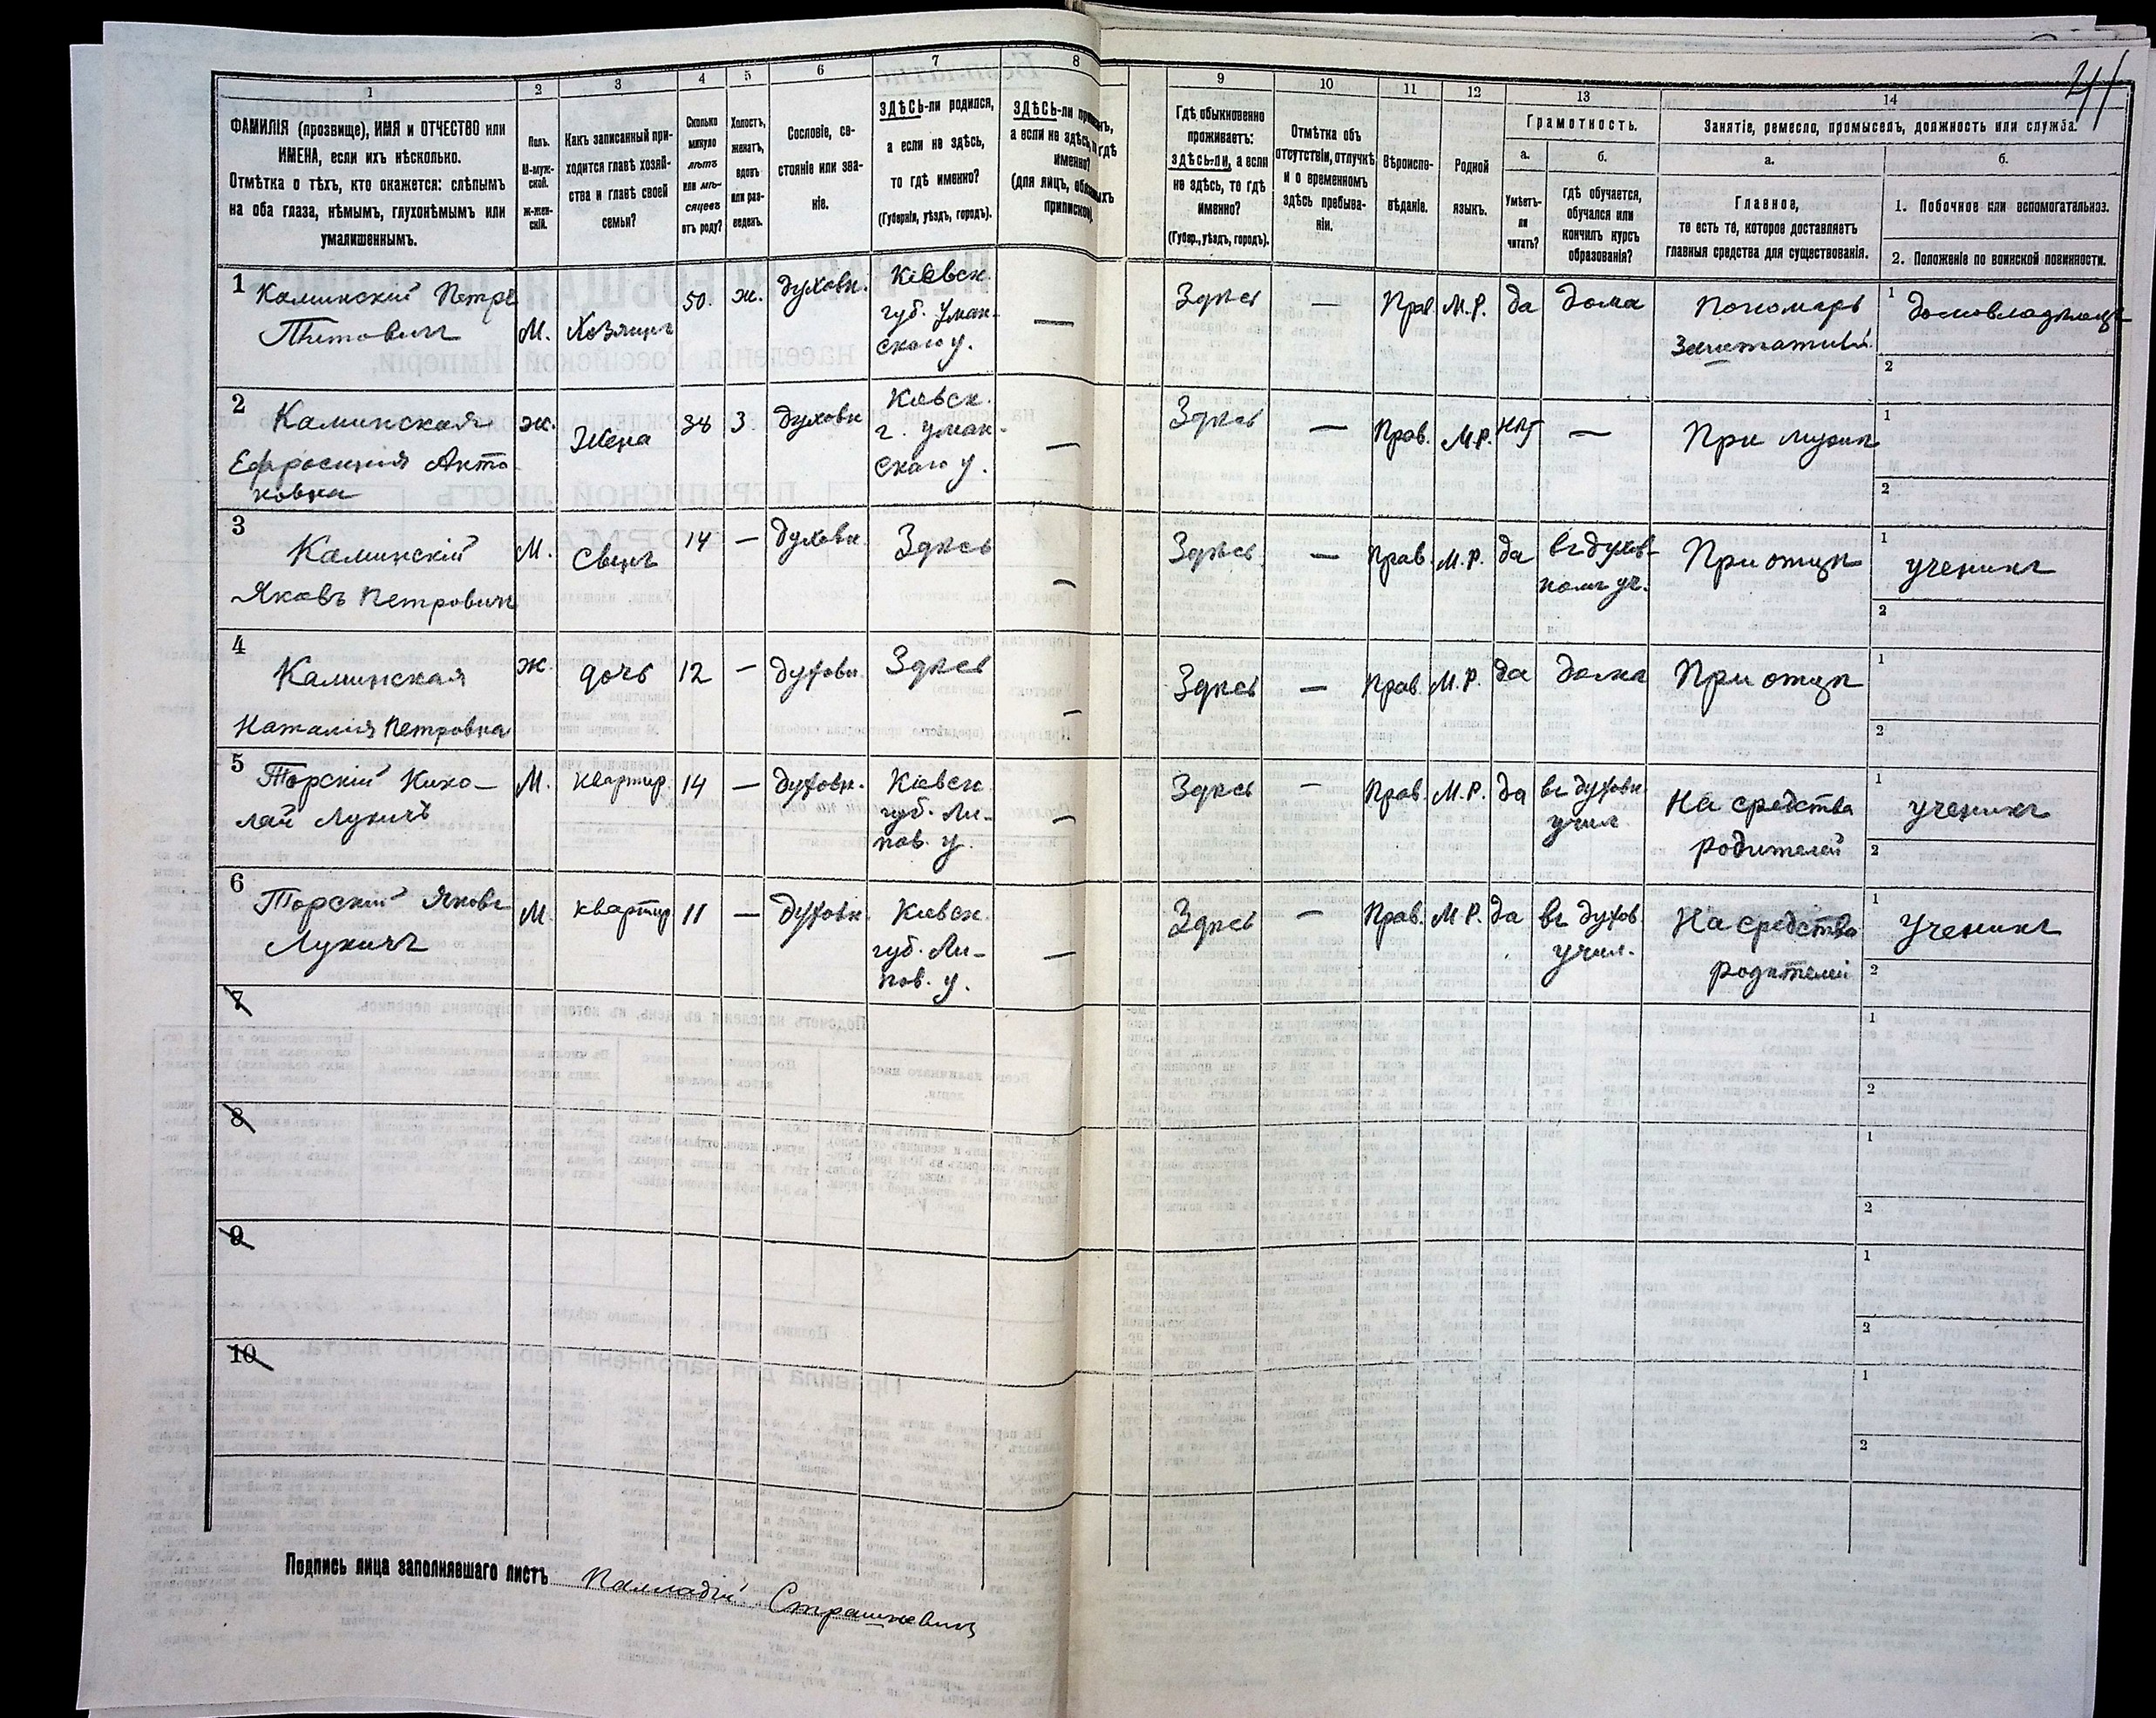 41
1 2 3 4 5 6 7 8 9 10 11 12 13 14
ФАМИЛІЯ (прозвище), ИМЯ и ОТЧЕСТВО или
ИМЕНА, если ихъ нѣсколько.
Отмѣтка о тѣхъ, кто окажется: слѣпымъ
на оба глаза, нѣмымъ, глухонѣмымъ или
умалишеннымъ.
Полъ.
М-муж-
ской.
ж-жен-
скій.
Какъ записанный при-
ходится главѣ хозяй-
ства и главѣ своей
семьи?
Сколько
минуло
лѣтъ
или мѣ-
сяцевъ
отъ роду?
Холостъ,
женатъ,
вдовъ
или раз-
веденъ.
Сословіе, со-
стояніе или зва-
ніе.
ЗДѢСЬ-ли родился,
а если не здѣсь,
то гдѣ именно?
(Губернія, уѣздъ, городъ).
ЗДѢСЬ-ли
а если не здѣсь, гдѣ
именно?
(для лицъ,
припиской).
Гдѣ обыкновенно
проживаетъ:
ЗДѢСЬ-ли, а если
не здѣсь, то гдѣ
именно?
(Губер., уѣздъ, городъ).
Отмѣтка объ
отсутствіи, отлучкѣ
и о временномъ
здѣсь пребыва-
ніи.
Вѣроиспо-
вѣданіе.
Родной
языкъ.
Грамотность.
а.
Умѣетъ-
ли
читать?
б.
гдѣ обучается,
обучался или
кончилъ курсъ
образованія?
Занятіе, ремесло, промыселъ, должность или служба.
а.
Главное,
то есть то, которое доставляетъ
главныя средства для существованія.
б.
1. Побочное или вспомогательное.
2. Положеніе по воинской повинности.
1 Каминскій Петръ
Титовичъ
М.
Хозяинъ
50.
ж.
духовн.
Кіевск.
губ. Уман-
скаго у.
—
Здѣсь
—
Прав.
М.Р.
да
дома
Пономарь
Заштатный
1 домовладѣлецъ
2
2 Каминская
Ефросинія Анто-
новна
ж.
Жена
38
З
духовн
Кіевск.
г. Уман-
скаго у.
—
Здѣсь
—
Прав.
М.Р.
нѣт
—
При мужѣ
1
2
3 Каминскій
Яковъ Петровичъ
М.
Сынъ
14
—
духовн
Здѣсь
—
Здѣсь
—
Прав.
М.Р.
да
въ духов-
номъ уч.
При отцѣ
1 ученикъ
2
4 Каминская
Наталія Петровна
ж.
дочь
12
—
духовн
Здѣсь
—
Здѣсь
—
Прав
М.Р.
да
дома
При отцѣ
1
2
5 Торскій Нико-
лай Лукичъ
М.
квартир.
14
—
духовн.
Кіевск
губ. Ли-
пов. у.
—
Здѣсь
—
Прав.
М.Р.
да
въ духовн
учил
На средства
родителей
1 ученикъ
2
6 Торскій Яковъ
Лукичъ
М
квартир
11
—
духовн.
Кіевск.
губ. Ли-
пов. у.
—
Здѣсь
—
Прав.
М.Р.
да
въ духов.
учил.
На средства
родителей
1 ученикъ
2
7
1
2
8
1
2
9
1
2
10
1
2
Подпись лица заполнявшаго листъ Палладій Страшкевичъ